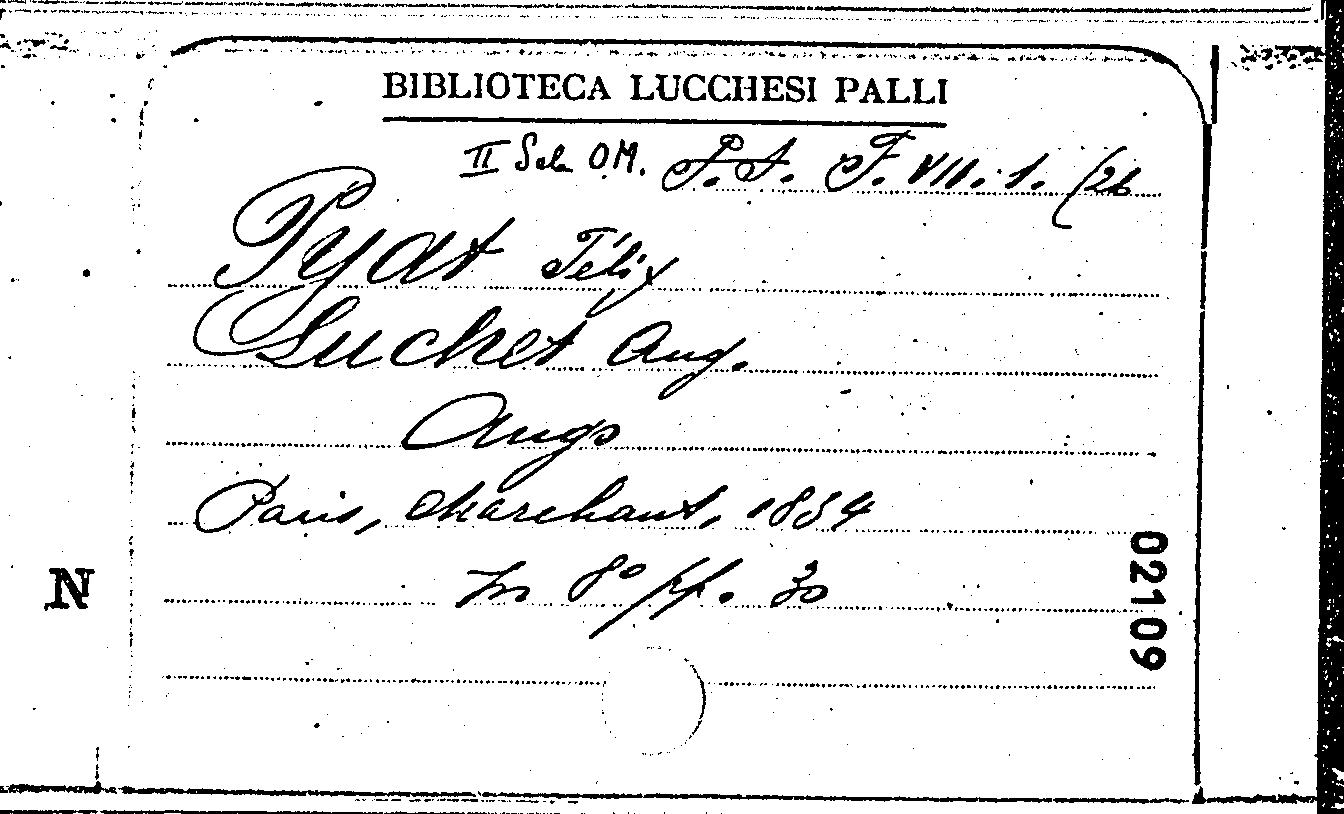 BIBLIOTECA LUCCHESI PALLI
II Sala O.M. P.T. F. VII. 1. (26
Pyat Félix
Luchet Aug.
Ango
Paris, Marchant, 1834
In 8° pp. 30
N
02109